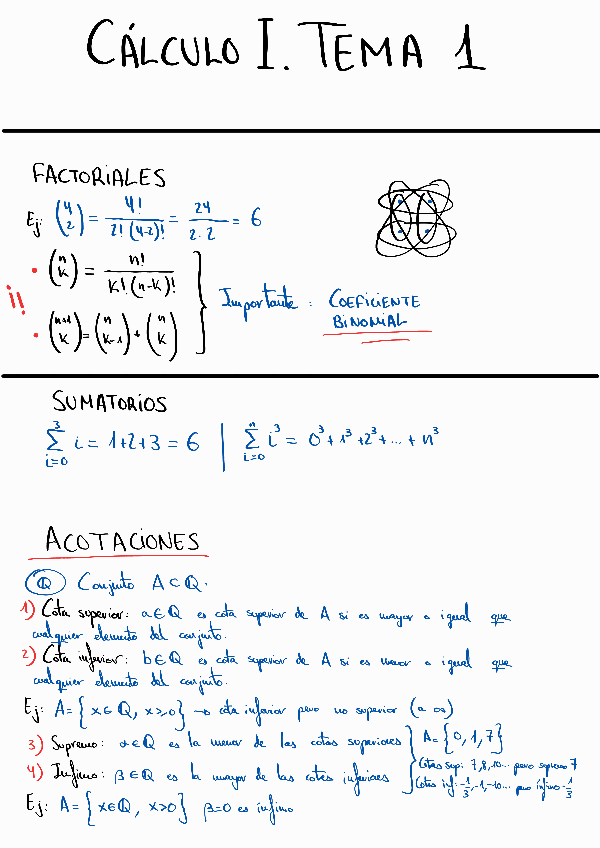 CÁLCULO I. TEMA 1
FACTORIALES
Ej: (4 2) = 4! / 2! (4-2)! = 24 / 2·2 = 6
¡¡ • (n k) = n! / k! (n-k)!
• (n+1 k) = (n k-1) + (n k)
Importante : COEFICIENTE
BINOMIAL
SUMATORIOS
3 ∑ i=0 i = 1+2+3 = 6 | n ∑ i=0 i³ = 0³ + 1³ + 2³ + ... + n³
ACOTACIONES
ℚ Conjunto A ⊂ ℚ.
1) Cota superior: a ∈ ℚ es cota superior de A si es mayor o igual que
cualquier elemento del conjunto.
2) Cota inferior: b ∈ ℚ es cota superior de A si es menor o igual que
cualquier elemento del conjunto.
Ej: A = { x ∈ ℚ, x ≥ 0 } → cota inferior pero no superior (a ∞)
3) Supremo: α ∈ ℚ es la menor de las cotas superiores
4) Ínfimo: β ∈ ℚ es la mayor de las cotas inferiores
A = { 0, 1, 7 }
Cotas sup: 7, 8, 10... pero supremo 7
Cotas inf: -1/3, -1, -10... pero ínfimo -1/3
Ej: A = { x ∈ ℚ, x > 0 } β = 0 es ínfimo